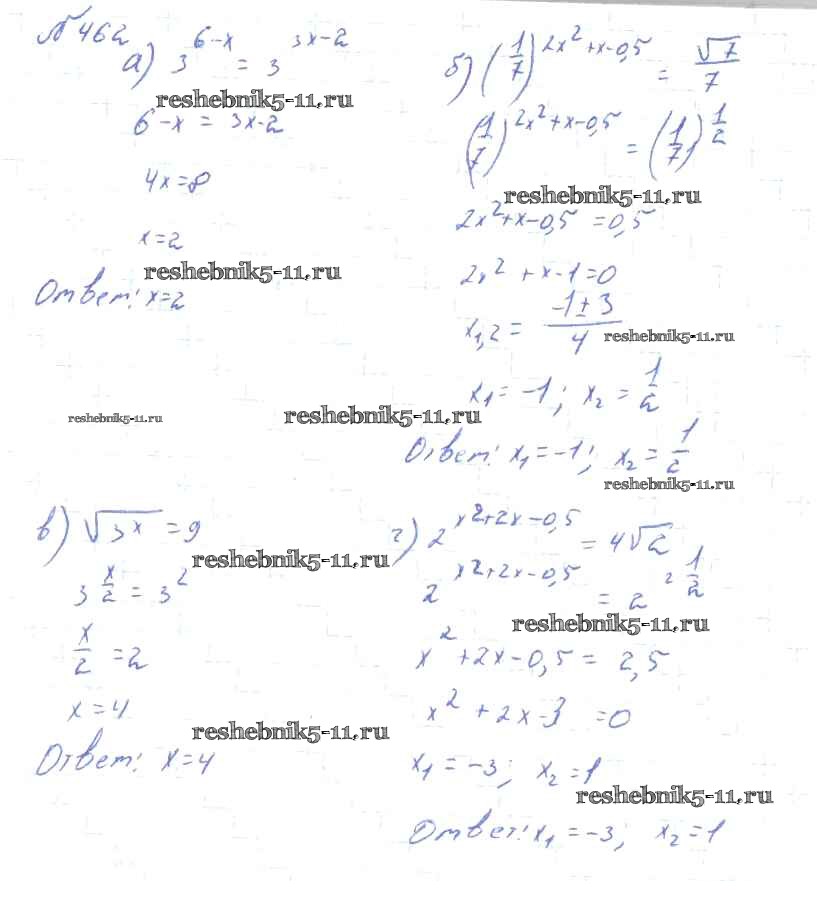 № 462
а) 3^{6-x} = 3^{3x-2}
reshebnik5-11.ru
6-x = 3x-2
4x=8
x=2
reshebnik5-11.ru
Ответ: x=2
reshebnik5-11.ru
reshebnik5-11.ru
б) (1/7)^{2x²+x-0,5} = √7/7
(1/7)^{2x²+x-0,5} = (1/7)^{1/2}
reshebnik5-11.ru
2x²+x-0,5 = 0,5
2x²+x-1=0
x₁,₂ = (-1±3)/4
reshebnik5-11.ru
x₁=-1; x₂=1/2
Ответ: x₁=-1; x₂=1/2
reshebnik5-11.ru
в) √3ˣ = 9
reshebnik5-11.ru
3^{x/2} = 3²
x/2 = 2
x=4
reshebnik5-11.ru
Ответ: x=4
г) 2^{x²+2x-0,5} = 4√2
2^{x²+2x-0,5} = 2^{2 1/2}
reshebnik5-11.ru
x²+2x-0,5 = 2,5
x²+2x-3 = 0
x₁=-3; x₂=1
reshebnik5-11.ru
Ответ: x₁=-3; x₂=1